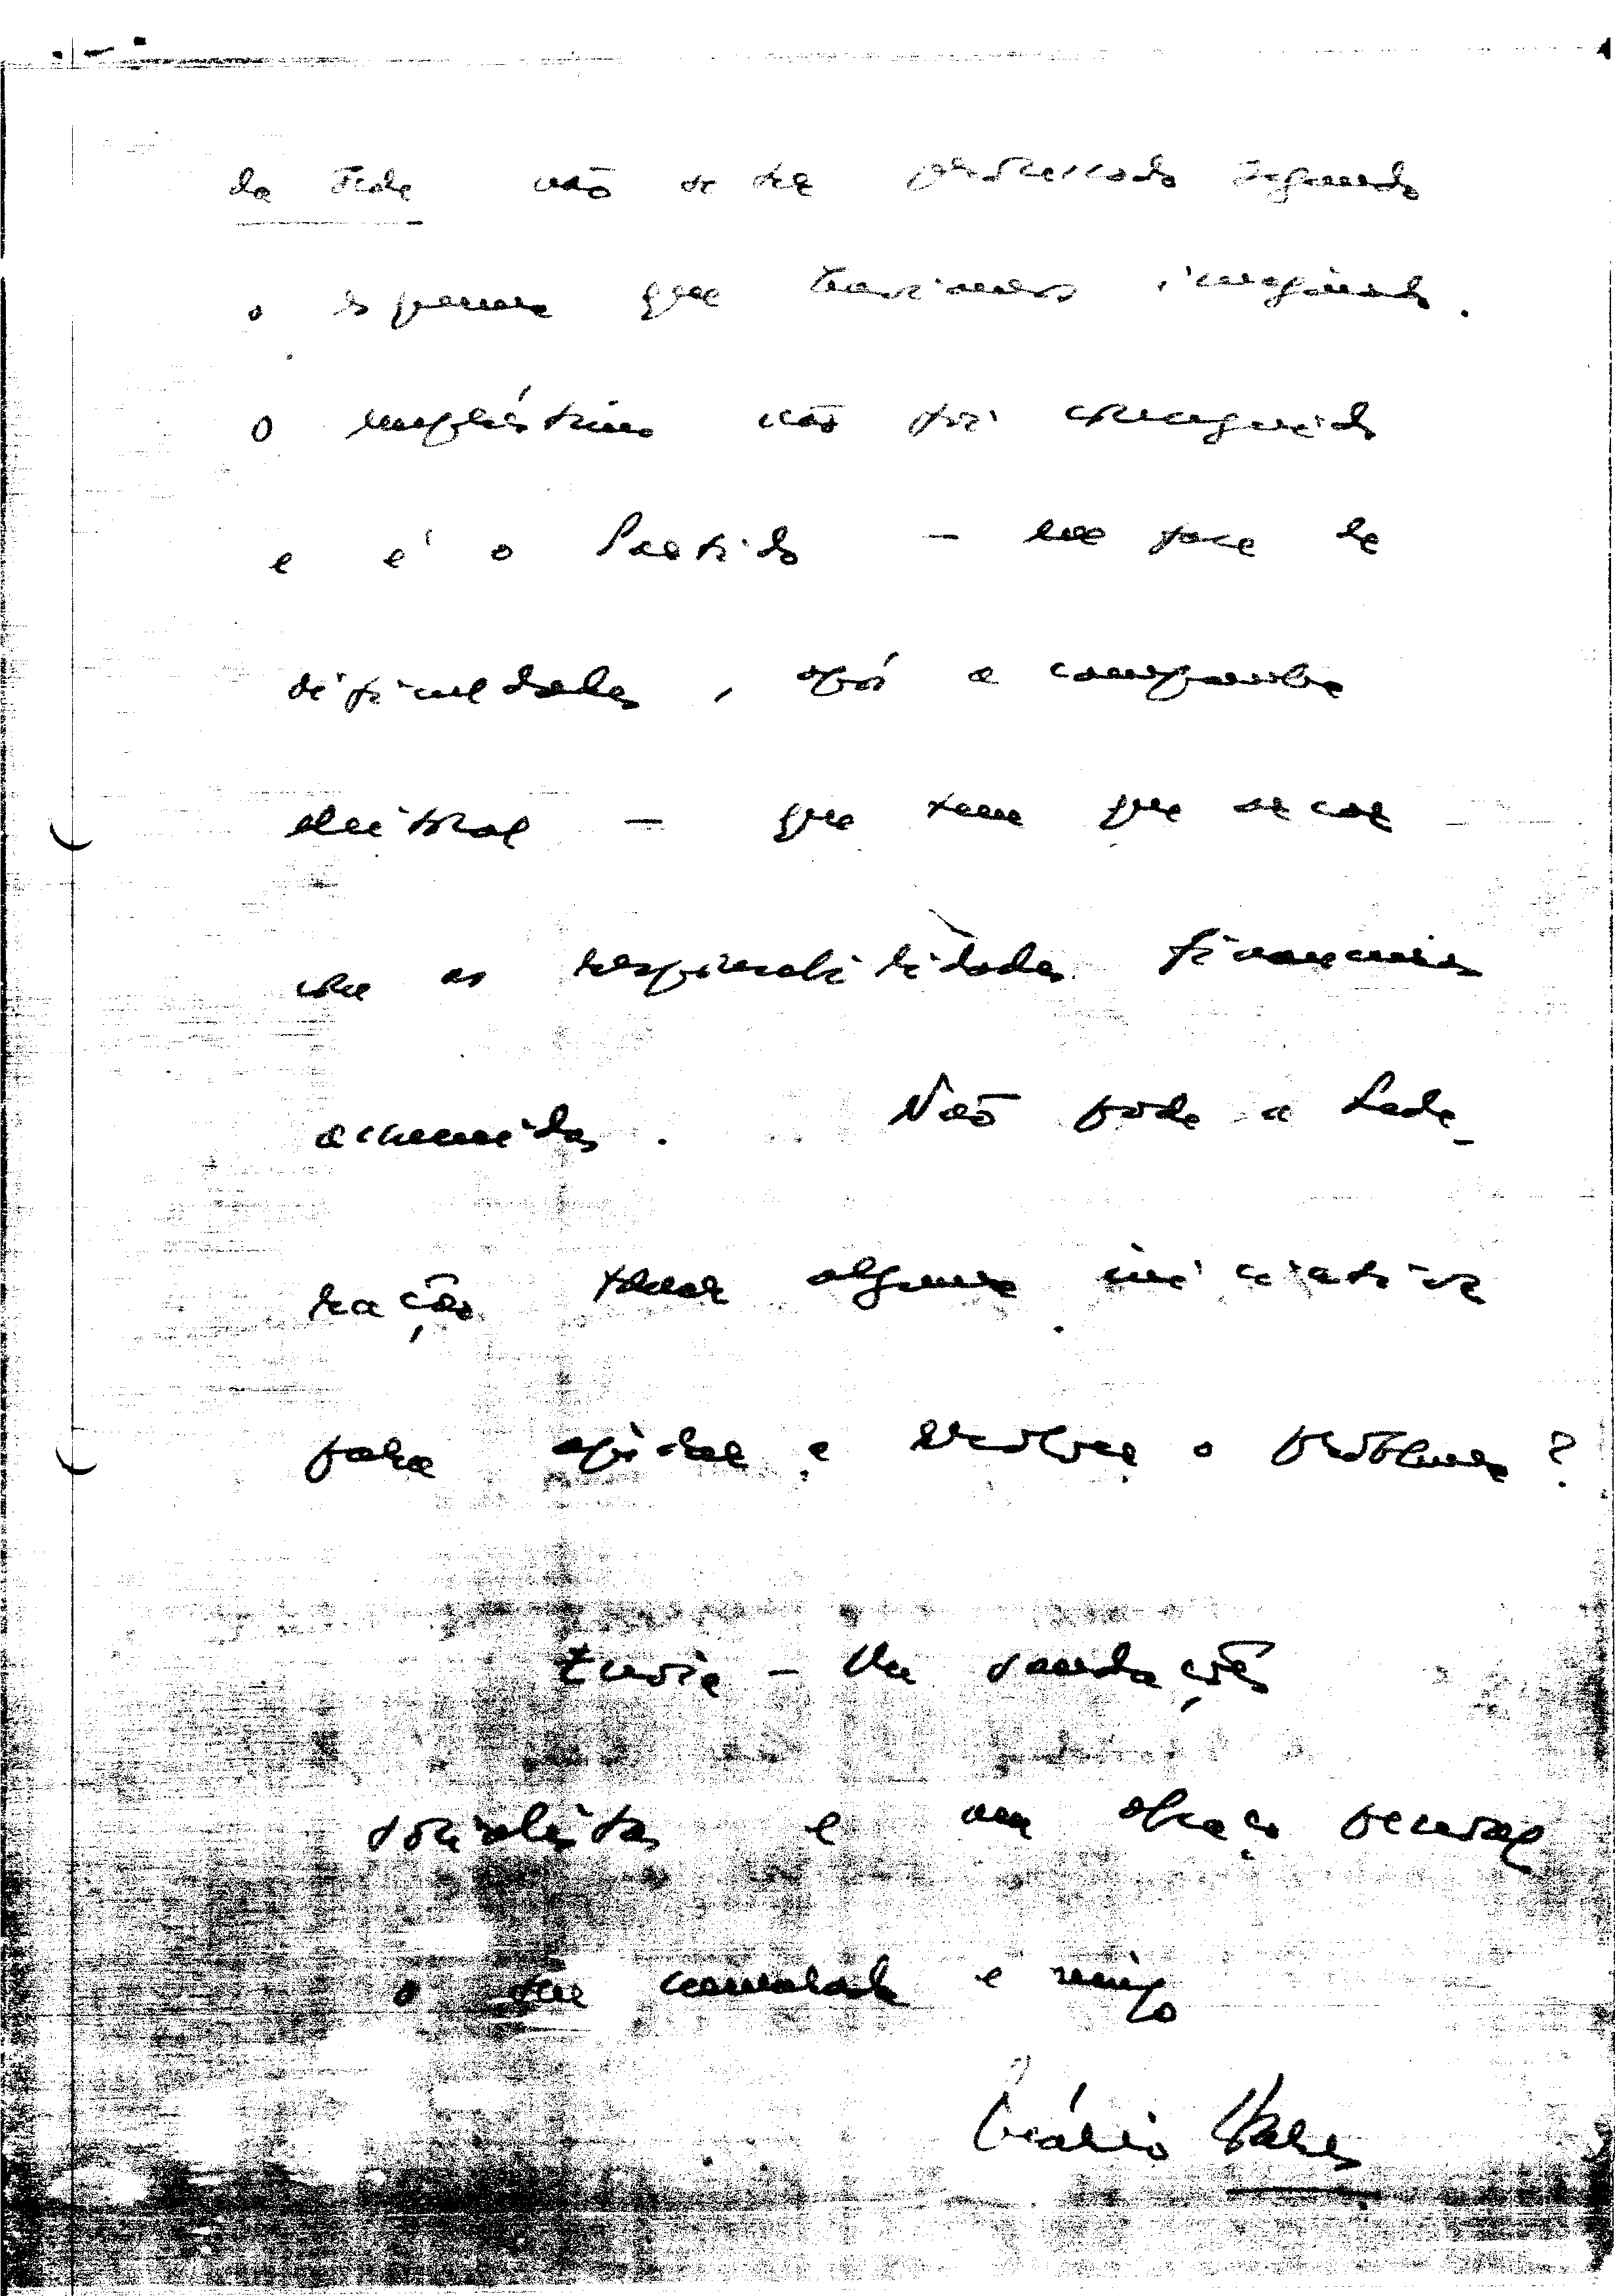 da Sede não se ter processado segundo
o esquema que havíamos imaginado.
O empréstimo não foi conseguido
e é o Partido - em face de
dificuldades, após a campanha
eleitoral - que tem que arcar
com as responsabilidades financeiras
assumidas. Não pode a Fede-
ração tomar alguma iniciativa
para ajudar a resolver o problema?
Envia-lhe saudações
socialistas e um abraço pessoal
o seu camarada e amigo
Mário Soares